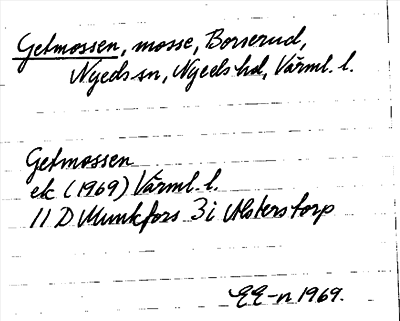 Getmossen, mosse, Borserud,
Nyeds sn, Nyeds hd, Värml. l.
Getmossen
ek (1969) Värml. l.
11 D Munkfors 3 i Ulsterstorp
EE-n 1969.